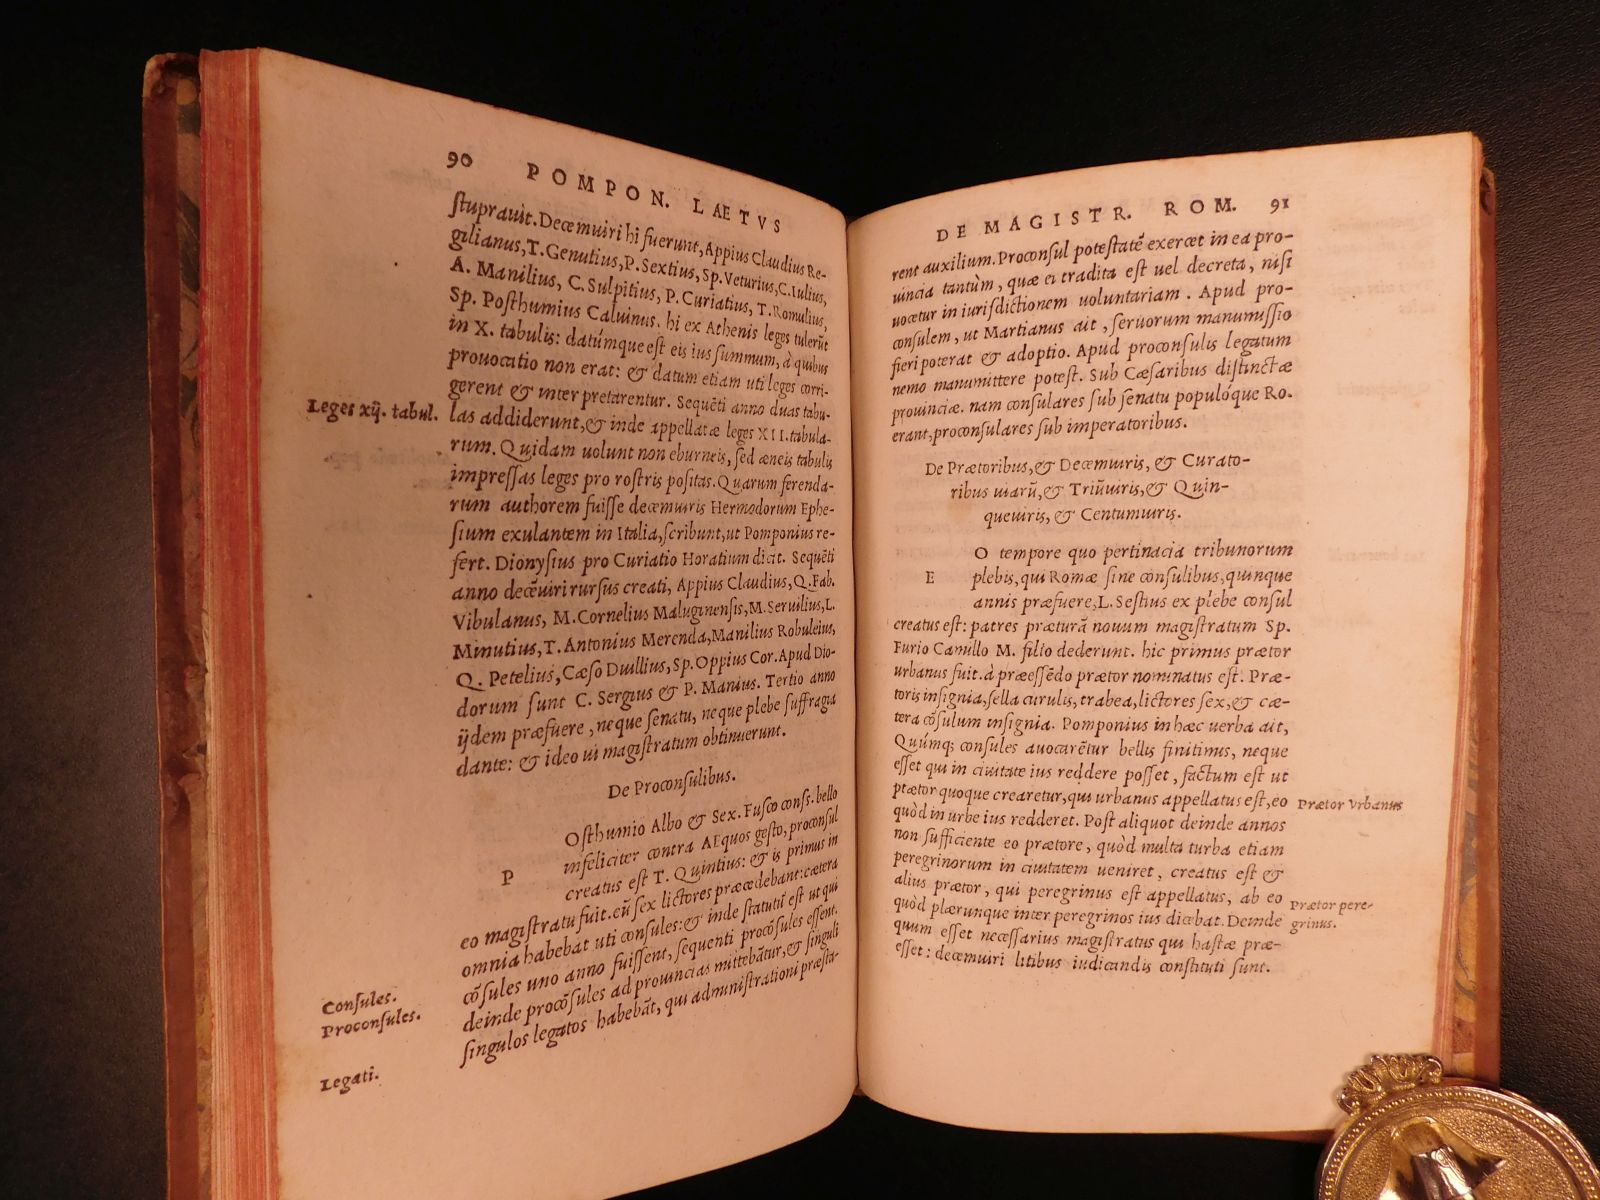 90 POMPON. LAETVS
ſtuprauit. Decemuiri hi fuerunt, Appius Claudius Re-
gilianus, T. Genutius, P. Sextius, Sp. Veturius, C. Iulius,
A. Manilius, C. Sulpitius, P. Curiatius, T. Romulius,
Sp. Poſthumius Caluinus. hi ex Athenis leges tulerūt
in X. tabulis: datúmque eſt eis ius ſummum, à quibus
prouocatio non erat: & datum etiam uti leges corri-
gerent & interpretarentur. Sequēti anno duas tabu-
Leges xij. tabul.
las addiderunt, & inde appellatæ leges XII. tabula-
rum. Quidam uolunt non eburneis, ſed æneis tabulis
impreſſas leges pro roſtris poſitas. Quarum ferenda-
rum authorem fuiſſe decemuiris Hermodorum Ephe-
ſium exulantem in Italia, ſcribunt, ut Pomponius re-
fert. Dionyſius pro Curiatio Horatium dicit. Sequēti
anno decēuiri rurſus creati, Appius Claudius, Q. Fab.
Vibulanus, M. Cornelius Maluginenſis, M. Seruilius, L.
Minutius, T. Antonius Merenda, Manilius Robuleius,
Q. Petelius, Cæſo Duillius, Sp. Oppius Cor. Apud Dio-
dorum ſunt C. Sergius & P. Manius. Tertio anno
ijdem præfuere, neque ſenatu, neque plebe ſuffragia
dante: & ideo ui magiſtratum obtinuerunt.
De Proconſulibus.
P
Oſthumio Albo & Sex. Fuſco conſs. bello
infeliciter contra AEquos geſto, proconſul
creatus eſt T. Quintius: & is primus in
eo magiſtratu fuit. eū ſex lictores præcedebant: cætera
omnia habebat uti conſules: & inde ſtatutū eſt ut qui
Conſules.
cōſules uno anno fuiſſent, ſequenti procōſules eſſent.
Proconſules.
deinde procōſules ad prouincias mittebātur, & ſinguli
Legati.
ſingulos legatos habebāt, qui adminiſtrationi præſta-
DE MAGISTR. ROM. 91
rent auxilium. Proconſul poteſtatē exercet in ea pro-
uincia tantùm, quæ ei tradita eſt uel decreta, niſi
uocetur in iuriſdictionem uoluntariam. Apud pro-
conſulem, ut Martianus ait, ſeruorum manumiſſio
fieri poterat & adoptio. Apud proconſulis legatum
nemo manumittere poteſt. Sub Cæſaribus diſtinctæ
prouinciæ. nam conſulares ſub ſenatu populóque Ro.
erant, proconſulares ſub imperatoribus.
De Prætoribus, & Decemuiris, & Curato-
ribus uiarū, & Triūuiris, & Quin-
queuiris, & Centumuiris.
E
O tempore quo pertinacia tribunorum
plebis, qui Romæ ſine conſulibus, quinque
annis præfuere, L. Seſtius ex plebe conſul
creatus eſt: patres præturā nouum magiſtratum Sp.
Furio Camillo M. filio dederunt. hic primus prætor
urbanus fuit. à præeſſēdo prætor nominatus eſt. Præ-
toris inſignia, ſella curulis, trabea, lictores ſex, & cæ-
tera cōſulum inſignia. Pomponius in hæc uerba ait,
Quúmq; conſules auocarētur bellis finitimis, neque
eſſet qui in ciuitate ius reddere poſſet, factum eſt ut
prætor quoque crearetur, qui urbanus appellatus eſt, eo
Prætor Vrbanus
quòd in urbe ius redderet. Poſt aliquot deinde annos
non ſufficiente eo prætore, quòd multa turba etiam
peregrinorum in ciuitatem ueniret, creatus eſt &
alius prætor, qui peregrinus eſt appellatus, ab eo
Prætor pere-
quòd plærunque inter peregrinos ius dicebat. Deinde
grinus.
quum eſſet neceſſarius magiſtratus qui haſtæ præ-
eſſet: decemuiri litibus iudicandis conſtituti ſunt.